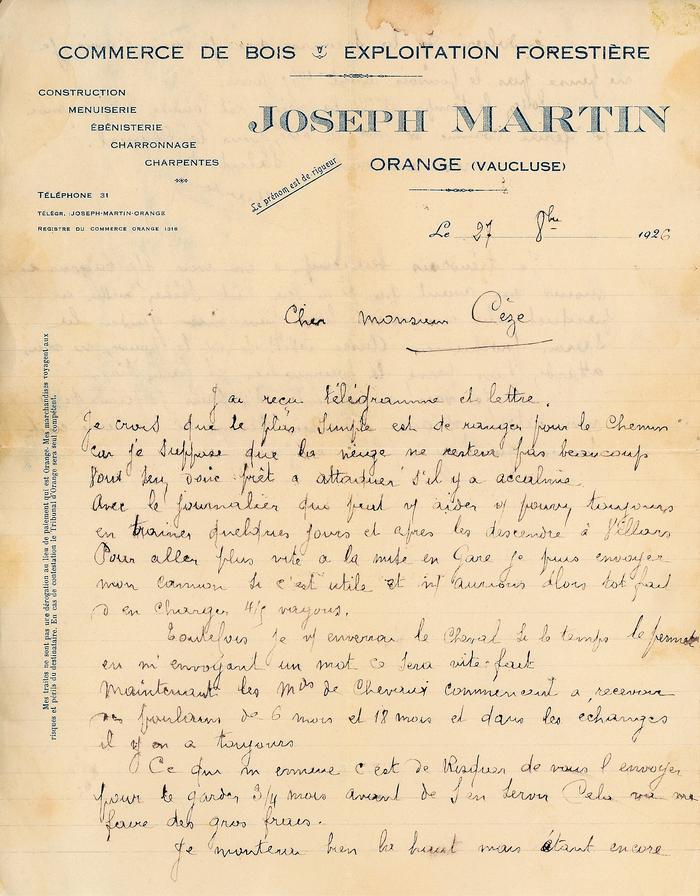 COMMERCE DE BOIS EXPLOITATION FORESTIÈRE
CONSTRUCTION
MENUISERIE
ÉBÉNISTERIE
CHARRONNAGE
CHARPENTES
TÉLÉPHONE 31
TÉLÉGR. :JOSEPH-MARTIN-ORANGE
REGISTRE DU COMMERCE ORANGE 1316
JOSEPH MARTIN
ORANGE (VAUCLUSE)
Le prénom est de rigueur
Le 27 8bre 1926
Cher monsieur Cèze
J ai reçu télégramme et lettre.
Je crois que le plus simple est de ranger pour le Chemin
car je suppose que la neige ne restera pas beaucoup
Vous donc prêt a attaquer s'il y a accalmie
Avec le journalier qui peut v/ aider v/ pouvez toujours
en trainer quelques jours et apres les descendre à Villars
Pour aller plus vite a la mise en Gare je puis envoyer
mon camion si c'est utile et n/ aurions alors tot fait
d en charger 4/5 wagons.
Toutefois je v/ enverrai le Cheval si le temps le permet
en m'envoyant un mot ce sera vite fait
Maintenant les Mds de Chevaux commencent a recevoir
des poulains de 6 mois et 18 mois et dans les échanges
il y en a toujours
Ce qui m ennuie c'est de Risquer de vous l envoyer
pour le garder 3/4 mois avant de s'en servir Cela va me
faire des gros frais.
Je monterai bien la haut mais étant encore
Mes traites ne sont pas une dérogation au lieu de paiement qui est Orange. Mes marchandises voyagent aux
risques et périls du destinataire. En cas de contestation le Tribunal d'Orange sera seul compétent.